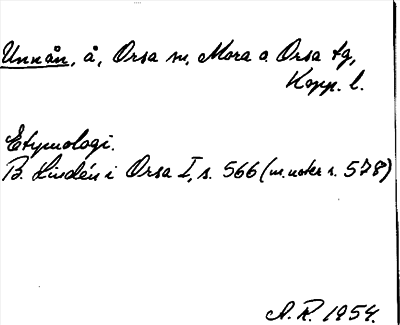 Unnån, å, Orsa sn, Mora o Orsa tg,
Kopp. l.
Etymologi.
B. Lindén i Orsa I, s. 566 (m. noter s. 578)
A. R. 1954.